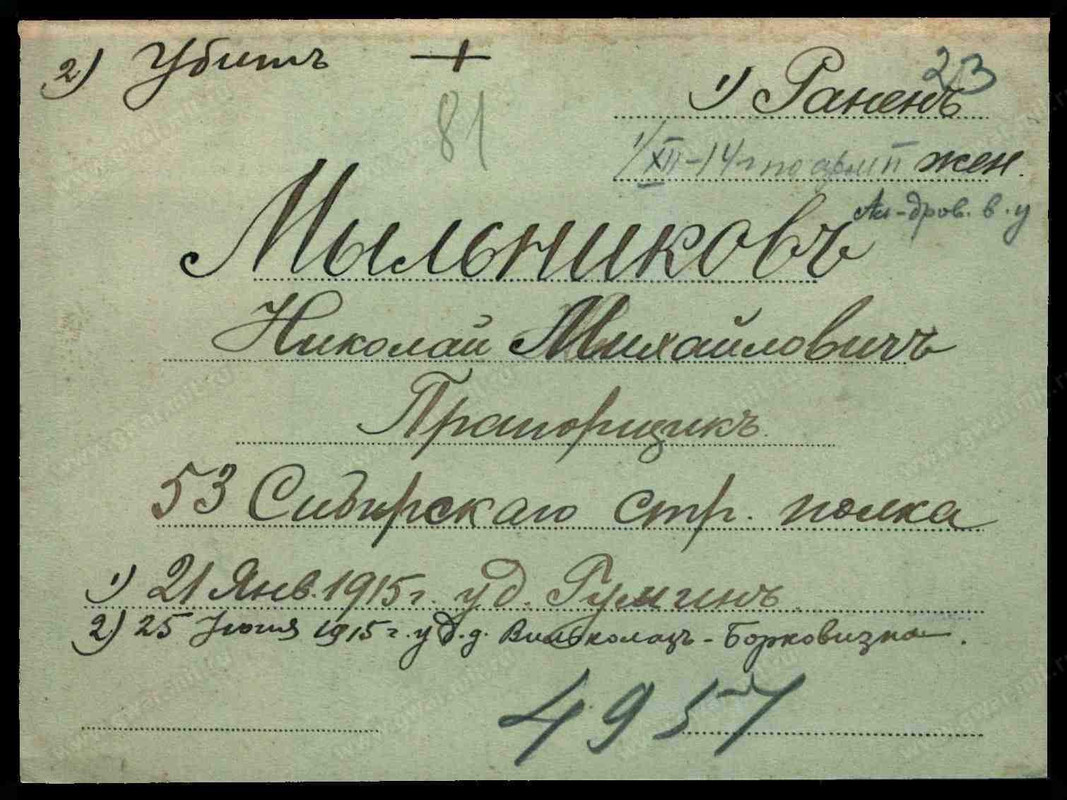 2) Убитъ +
23
1) Раненъ
81
1/XII-14г по арм II жен.
Ал-дров. в. у
Мыльниковъ
Николай Михайловичъ
Прапорщикъ
53 Сибирскаго стр. полка
1) 21 Янв. 1915г. у д. Гуминъ
2) 25 Июня 1915г. у д. д. Вильколазъ-Борковизна.
4957
www.gwar.mil.ru